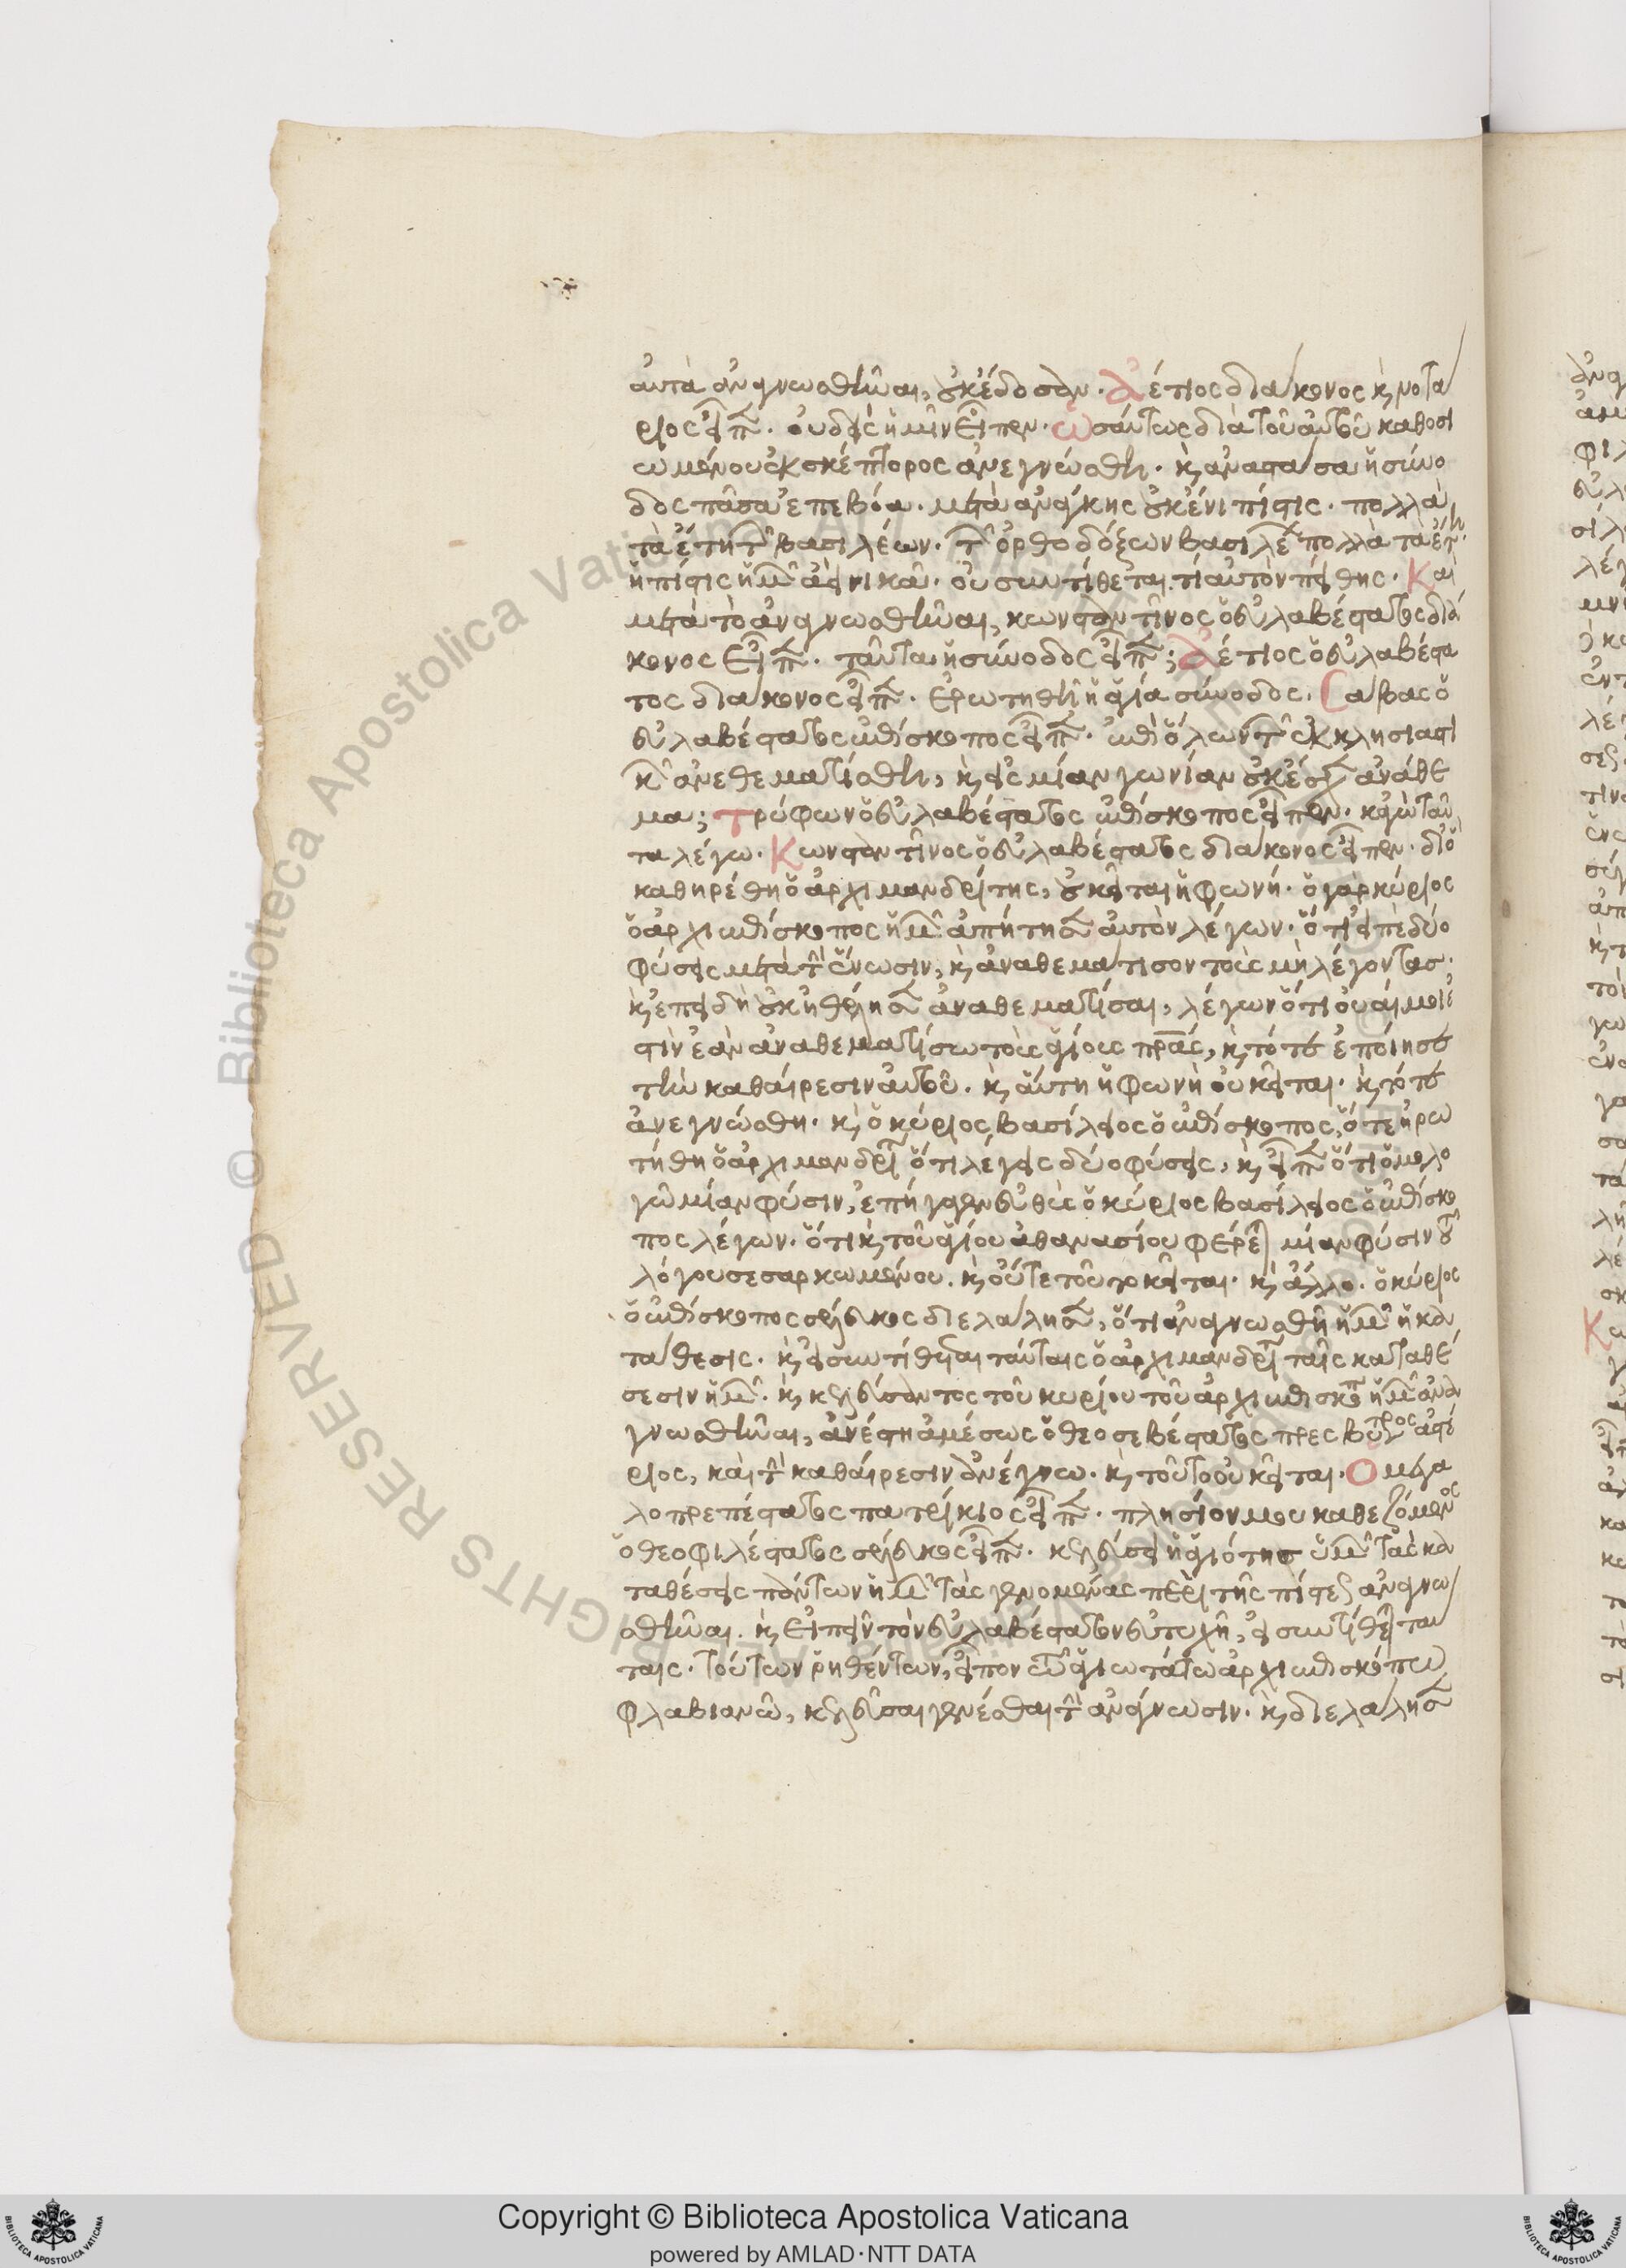 αὐτὰ ἀναγνωσθῆναι, οὐκ ἔδοσαν. Ἀέτιος διάκονος κ νοτά
ριος εἶπ. οὐδεὶς ἡμῖν εἶπεν. ὡσαύτως διὰ τοῦ αὐτοῦ καθοσι
ωμένου ἐκσκέπτορος ἀνεγνώσθη. κ ἀναστᾶσα ἡ σύνο
δος πᾶσα ἐπεβόα. μετὰ ἀνάγκης οὐκ ἔνι πίστις. πολλὰ
τὰ ἔτη τῶν βασιλέων. τῶν ὀρθοδόξων βασιλέων πολλὰ τὰ ἔτη.
ἡ πίστις ἡμῶν ἀεὶ νικᾷ. οὐ συντίθεται. τί αὐτὸν πείθεις. Καὶ
μετὰ τὸ ἀναγνωσθῆναι, κωνσταντῖνος ὁ εὐλαβέστατος διά
κονος εἶπ. ταῦτα ἡ σύνοδος εἶπ; Ἀέτιος ὁ εὐλαβέστα
τος διάκονος εἶπ. ἐρωτηθῇ ἡ ἁγία σύνοδος. Σάβας ὁ
εὐλαβέστατος ἐπίσκοπος εἶπ. ἐπὶ ὅλων τῶν ἐκκλησιαστι
κῶν ἀνεθεματίσθη, κ εἰς μίαν γωνίαν οὐκ ἔσχεν ἀνάθε
μα; Τρύφων ὁ εὐλαβέστατος ἐπίσκοπος εἶπεν. κἀγὼ ταῦ
τα λέγω. Κωνσταντῖνος ὁ εὐλαβέστατος διάκονος εἶπεν. διὸ
καθηρέθη ὁ ἀρχιμανδρίτης, οὐ κεῖται ἡ φωνή. ὁ γὰρ κύριος
ὁ ἀρχιεπίσκοπος ἡμῶν ἀπῄτησεν αὐτὸν λέγων. ὅτι εἰπὲ δύο
φύσεις μετὰ τὴν ἕνωσιν, κ ἀναθεμάτισον τοὺς μὴ λέγοντας.
κ ἐπειδὴ οὐκ ἠθέλησεν ἀναθεματίσαι, λέγων ὅτι οὐαί μοι ἐ
στὶν ἐὰν ἀναθεματίσω τοὺς ἁγίους πρας, κ τότε ἐποίησε
τὴν καθαίρεσιν αὐτοῦ. κ αὕτη ἡ φωνὴ οὐ κεῖται. κ τότε
ἀνεγνώσθη. κ ὁ κύριος βασίλειος ὁ ἐπίσκοπος, ὅτε ἠρω
τήθη ὁ ἀρχιμανδρί ὅτι λέγεις δύο φύσεις, κ εἶπ ὅτι ὁμολο
γῶ μίαν φύσιν, ἐπήγαγεν εὐθὺς ὁ κύριος βασίλειος ὁ ἐπίσκο
πος λέγων. ὅτι κ τοῦ ἁγίου ἀθανασίου φέρεται μίαν φύσιν τοῦ
λόγου σεσαρκωμένου. κ οὔτε τοῦτο κεῖται. κ ἄλλο. ὁ κύριος
ὁ ἐπίσκοπος σέλευκος διελάλησεν, ὅτι ἀναγνωσθῇ ἡμῶν ἡ κα
τάθεσις. κ εἰ συντίθεται ταύταις ὁ ἀρχιμανδρί ταῖς καταθέ
σεσιν ἡμῶν. κ κελεύσαντος τοῦ κυρίου τοῦ ἀρχιεπισκόπ ἡμῶν ἀνα
γνωσθῆναι, ἀνέστη ἀμέσως ὁ θεοσεβέστατος πρεσβύτερος ἀστέ
ριος, καὶ τὴν καθαίρεσιν ἀνέγνω. κ τοῦτο οὐ κεῖται. Ὁ μεγα
λοπρεπέστατος πατρίκιος εἶπ. πλησίον μου καθεζόμενος
ὁ θεοφιλέστατος σέλευκος εἶπ. κελεύσει ἡ ἁγιότης ὑμῶν τὰς κα
ταθέσεις πάντων ἡμῶν τὰς γενομένας περὶ τῆς πίστεως ἀναγνω
σθῆναι. κ εἰπεῖν τὸν εὐλαβέστατον εὐτυχῆ, εἰ συντίθεται ταύ
ταις. τούτων ῥηθέντων, εἶπον τῷ ἁγιωτάτῳ ἀρχιεπισκόπῳ
φλαβιανῷ, κελεῦσαι γενέσθαι τὴν ἀνάγνωσιν. κ διελάλησεν